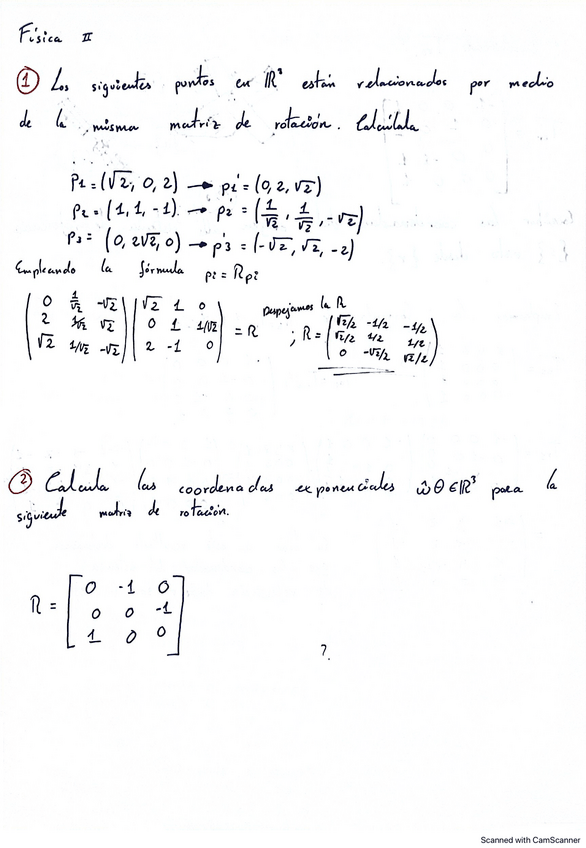 Física II
① Los siguientes puntos en ℝ³ están relacionados por medio
de la misma matriz de rotación. Calcúlala
P1 = (√2, 0, 2) → p1' = (0, 2, √2)
P2 = (1, 1, -1) → p2' = (1/√2, 1/√2, -√2)
P3 = (0, 2√2, 0) → p'3 = (-√2, √2, -2)
Empleando la fórmula pi = Rpi
Despejamos la R
( 0 1/√2 -√2 ) ( √2 1 0 ) = R ; R = ( √2/2 -1/2 -1/2 )
( 2 1/√2 √2 ) ( 0 1 1/√2 ) ( √2/2 1/2 1/2 )
( √2 1/√2 -√2 ) ( 2 -1 0 ) ( 0 -√2/2 √2/2 )
② Calcula las coordenadas exponenciales ŵθ ∈ ℝ³ para la
siguiente matriz de rotación.
R = [ 0 -1 0 ]
[ 0 0 -1 ]
[ 1 0 0 ]
?
Scanned with CamScanner